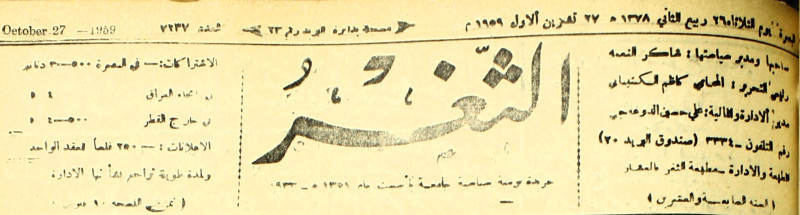 البصرة يوم الثلاثاء ٢٦ ربيع الثاني ١٣٧٨ هـ ٢٧ تشرين الاول ١٩٥٩ م
مسجلة بدائرة البريد رقم ٢٣
٧٢٣٧
October-27 -1959
صاحبها ومدير سياستها : شاكر النعمه
رئيس التحرير : المحامي كاظم
مدير الادارة والمالية : علي حسين
رقم التلفون - ٣٣٣٤ (صندوق البريد ٢٠)
المطبعة والادارة - مطبعة الثغر بالعشار
( السنة السابعة والعشرين )
الثغر
جريدة يومية سياسية جامعية تأسست عام ١٣٥١ هـ - ١٩٣٣
الاشتراكات :- في البصرة ٣٠٠٠-٥٠٠ دنانير
انحاء العراق ٤ »
في خارج القطر ٥٠٠-٤ »
الاعلانات :- ٢٥٠ فلساً للعقد الواحد
ولمدة طويلة تراجع بشأنها الادارة
( ثمن النسخة ١٠ فلوس )